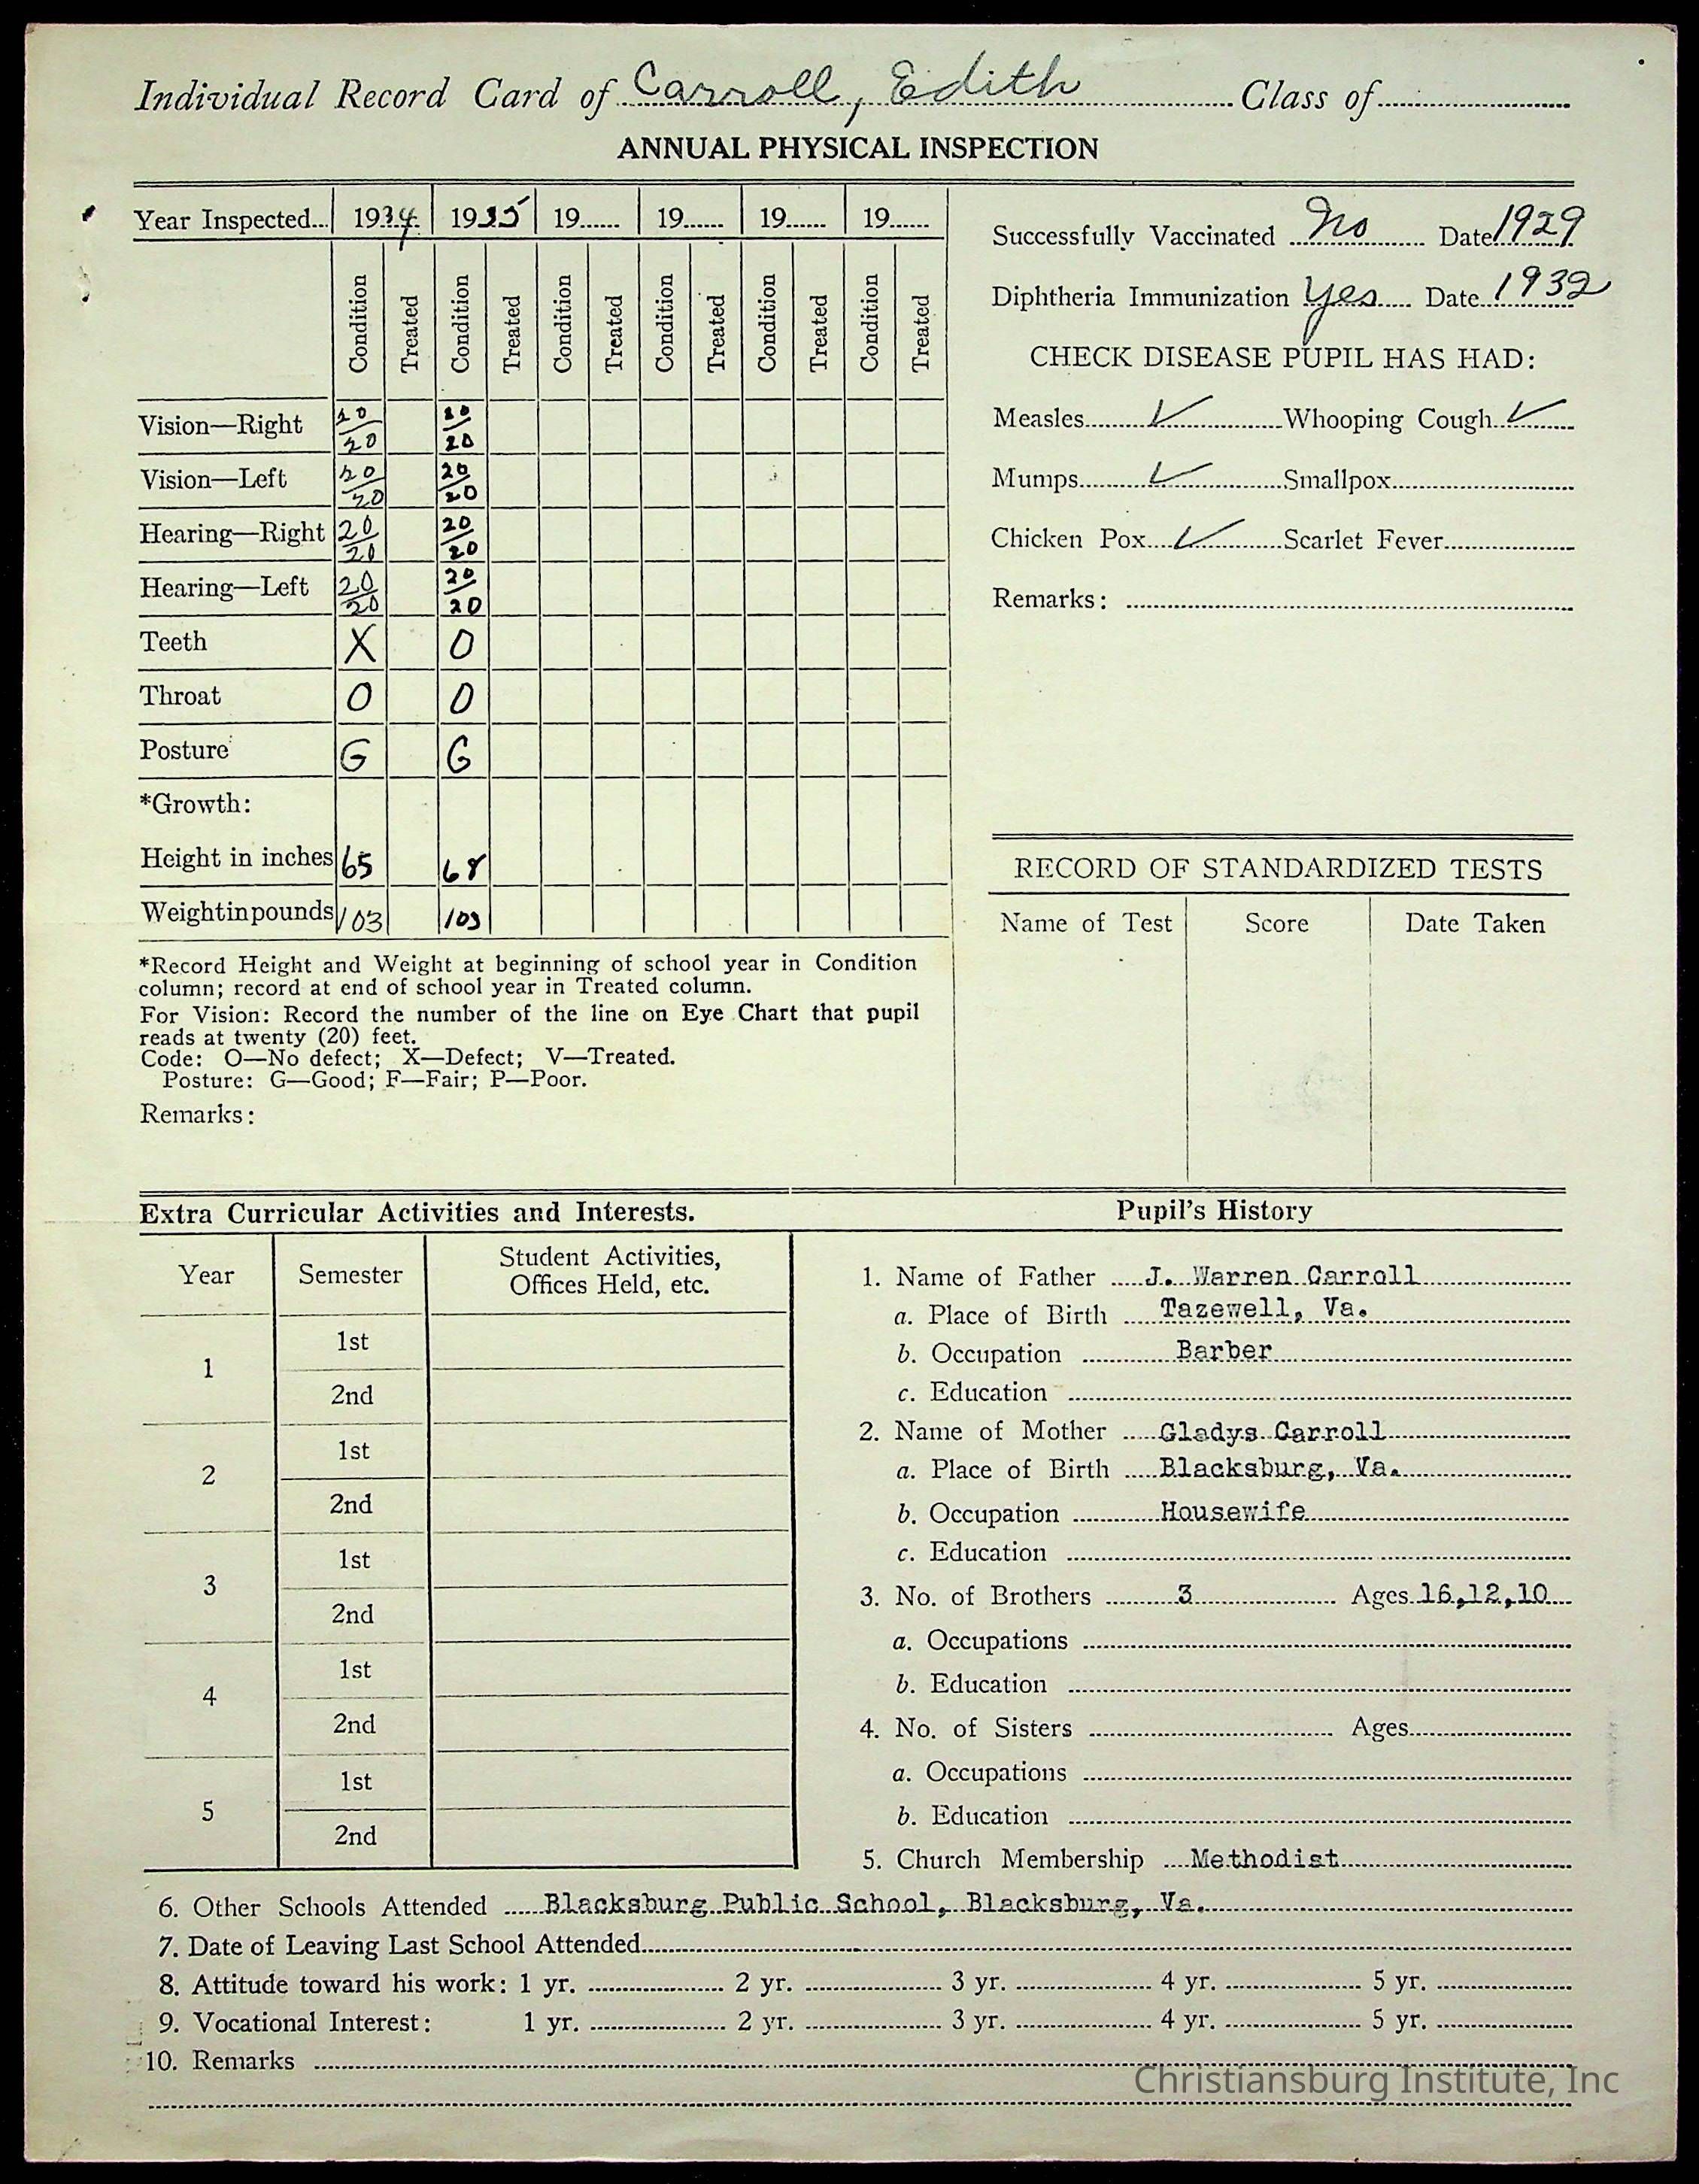 Individual Record Card of Carroll, Edith Class of
ANNUAL PHYSICAL INSPECTION
Year Inspected... 1934 1935 19...... 19...... 19...... 19......
Condition Treated Condition Treated Condition Treated Condition Treated Condition Treated Condition Treated
Vision—Right 20/20 20/20
Vision—Left 20/20 20/20
Hearing—Right 20/20 20/20
Hearing—Left 20/20 20/20
Teeth X O
Throat O O
Posture G G
*Growth:
Height in inches 65 68
Weight in pounds 103 103
*Record Height and Weight at beginning of school year in Condition
column; record at end of school year in Treated column.
For Vision: Record the number of the line on Eye Chart that pupil
reads at twenty (20) feet.
Code: O—No defect; X—Defect; V—Treated.
Posture: G—Good; F—Fair; P—Poor.
Remarks:
Successfully Vaccinated No Date 1929
Diphtheria Immunization Yes Date 1932
CHECK DISEASE PUPIL HAS HAD:
Measles ✓ Whooping Cough ✓
Mumps ✓ Smallpox
Chicken Pox ✓ Scarlet Fever
Remarks:
RECORD OF STANDARDIZED TESTS
Name of Test Score Date Taken
Extra Curricular Activities and Interests.
Year Semester Student Activities,
Offices Held, etc.
1 1st
2nd
2 1st
2nd
3 1st
2nd
4 1st
2nd
5 1st
2nd
Pupil's History
1. Name of Father J. Warren Carroll
a. Place of Birth Tazewell, Va.
b. Occupation Barber
c. Education
2. Name of Mother Gladys Carroll
a. Place of Birth Blacksburg, Va.
b. Occupation Housewife
c. Education
3. No. of Brothers 3 Ages 16,12,10
a. Occupations
b. Education
4. No. of Sisters Ages
a. Occupations
b. Education
5. Church Membership Methodist
6. Other Schools Attended Blacksburg Public School, Blacksburg, Va.
7. Date of Leaving Last School Attended
8. Attitude toward his work: 1 yr. 2 yr. 3 yr. 4 yr. 5 yr.
9. Vocational Interest: 1 yr. 2 yr. 3 yr. 4 yr. 5 yr.
10. Remarks
Christiansburg Institute, Inc